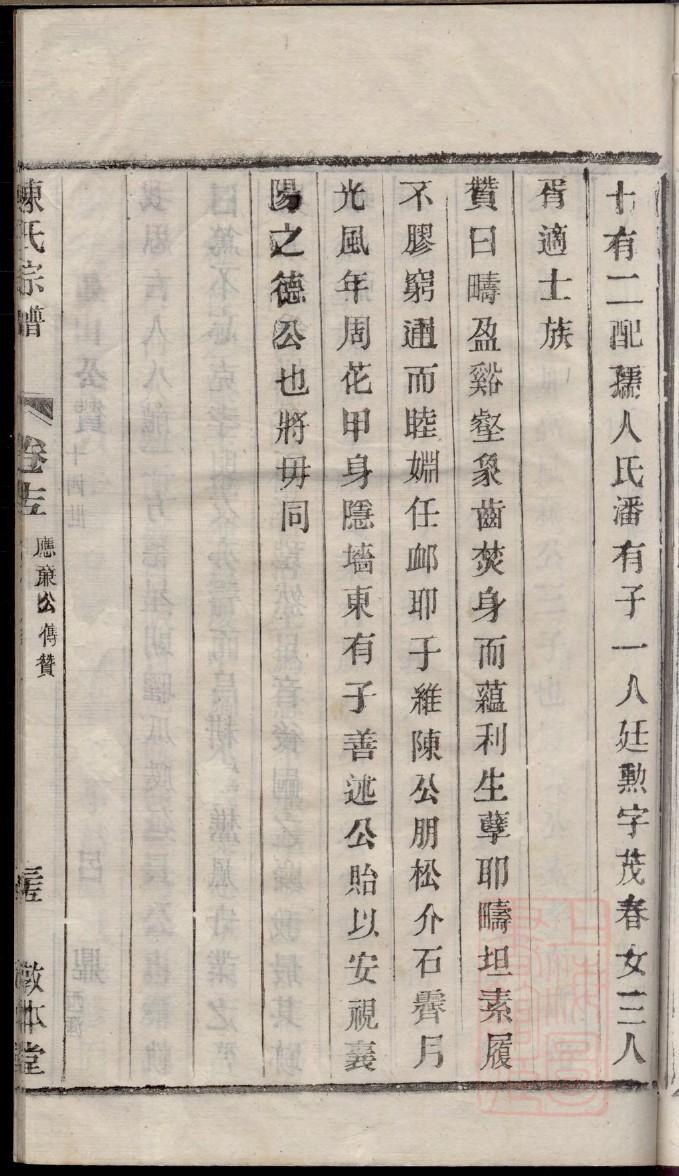 十有二配孺人氏潘有子一人廷勲字茂春女三人
胥適士族
贊曰疇盈谿壑象齒焚身而蘊利生孽耶疇坦素履
不膠窮通而睦婣任䘏耶于維陳公朋松介石霽月
光風年周花甲身隱墻東有子善述公貽以安視襄
陽之德公也將毋同
陳氏宗譜
應蕭公傳贊
敬本堂